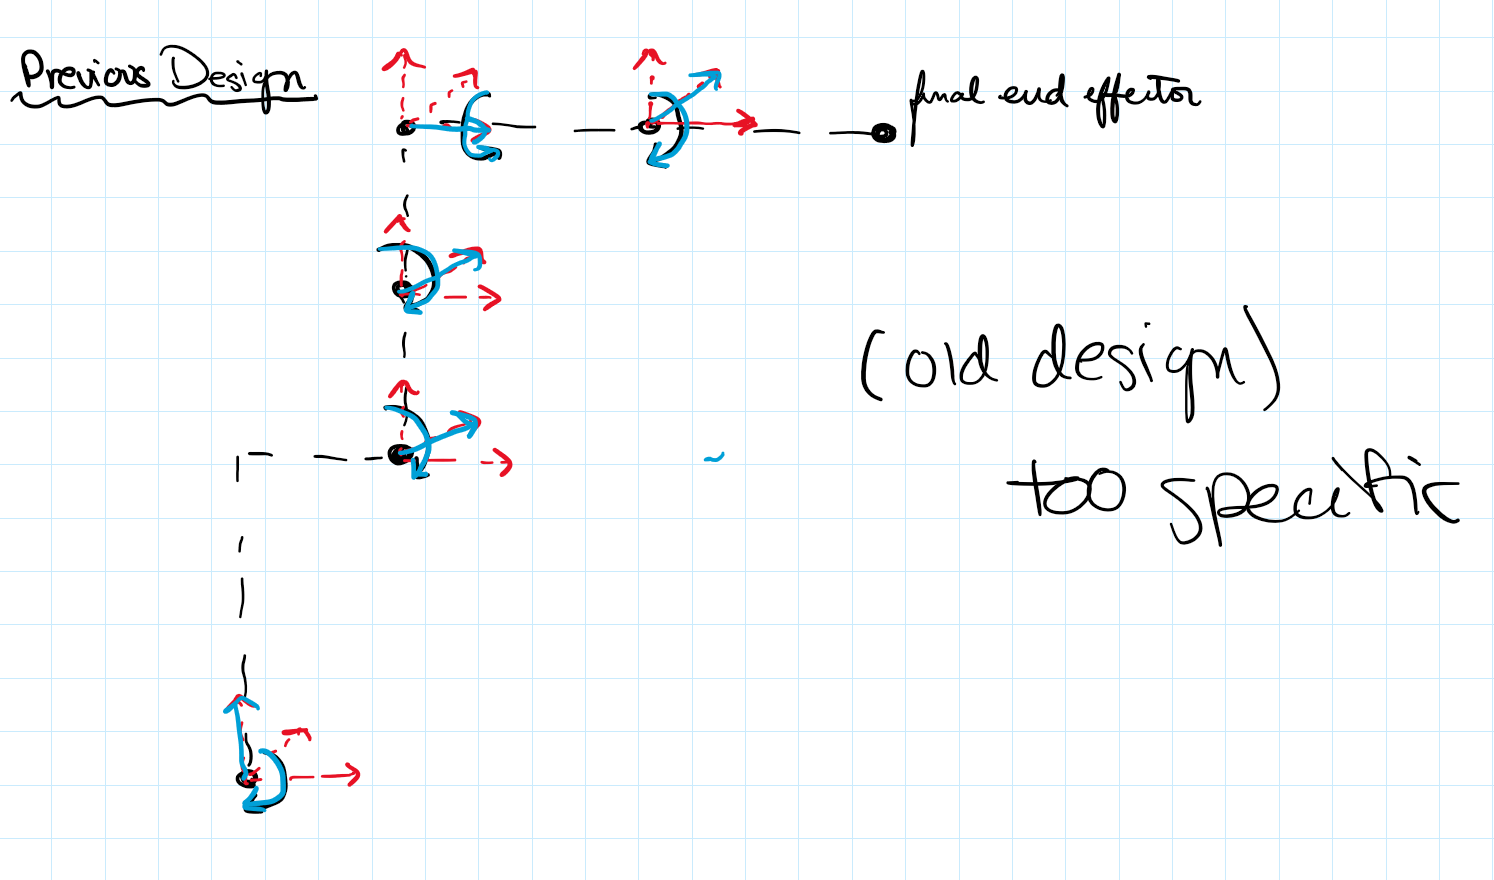 Previous Design
final end effector
(old design)
too specific